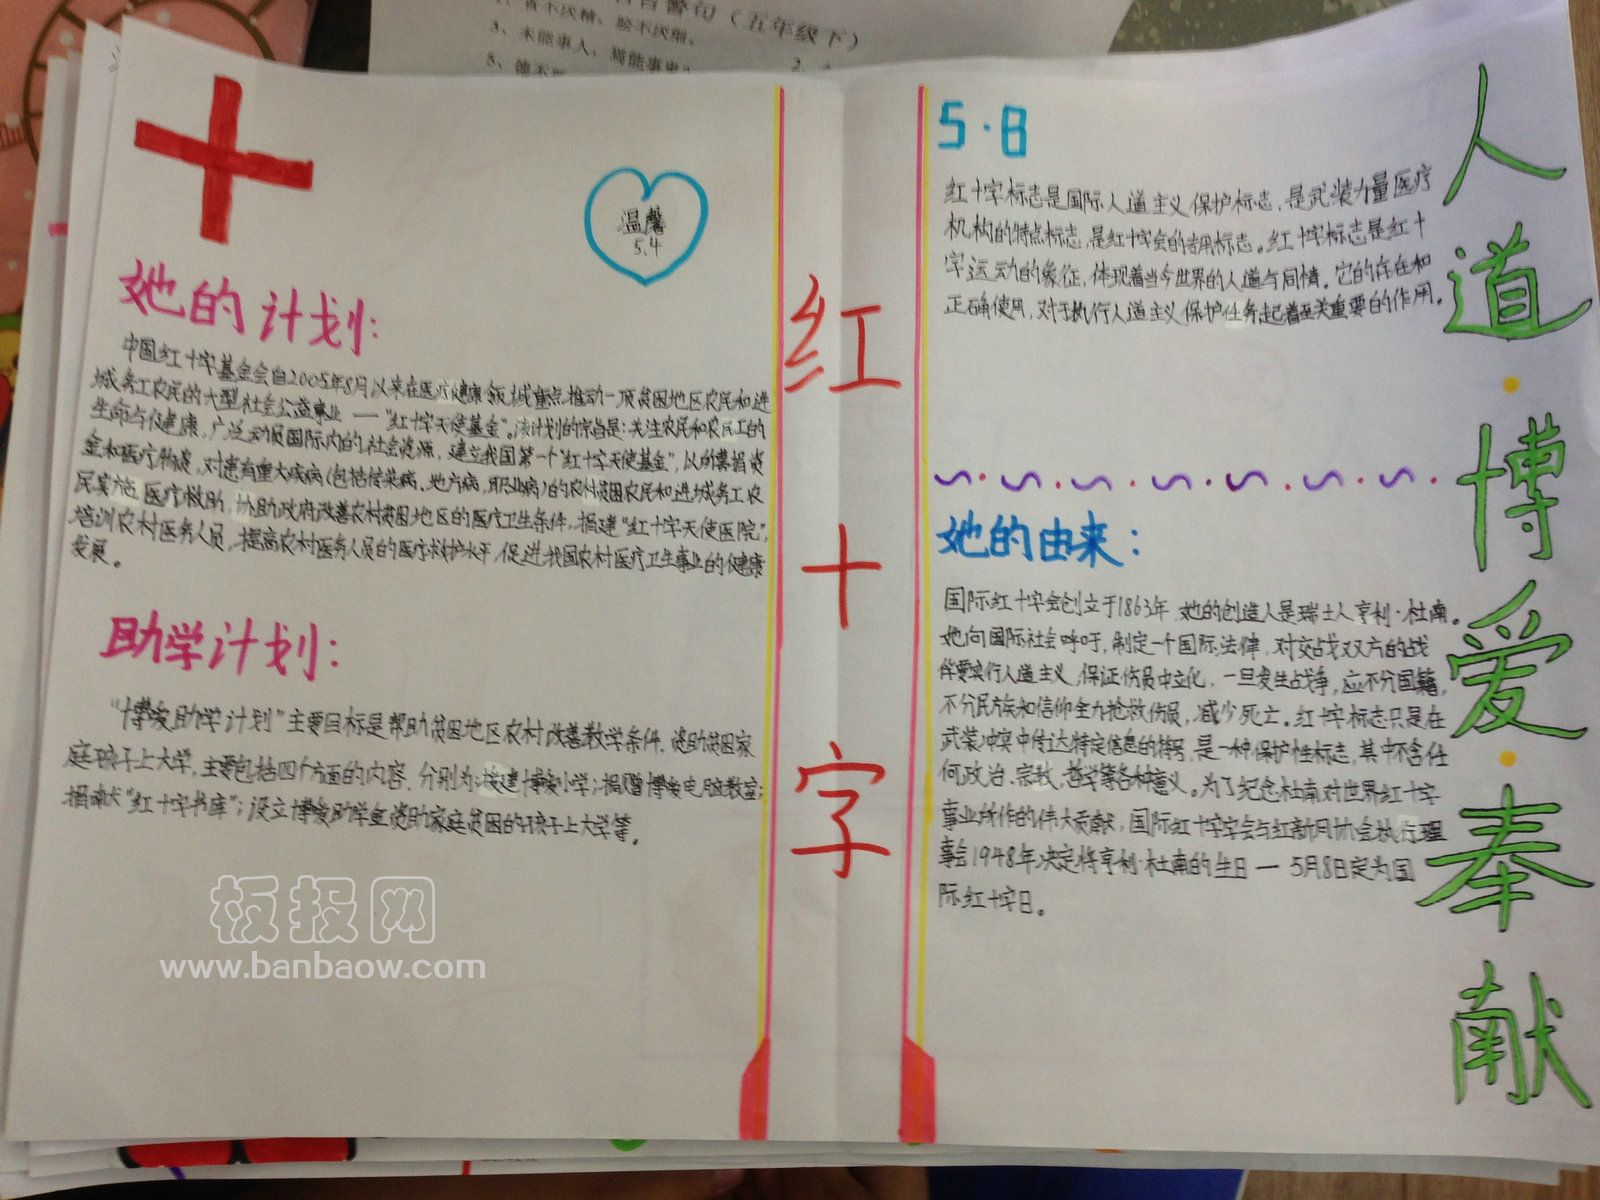 言警句（五年级下）
食不厌精，脍不厌细。
3、未能事人，焉能事鬼
5、
她的计划：
中国红十字基金会自2005年8月以来在医疗健康领域重点推动一项贫困地区农民和进
城务工农民的大型社会公益事业——"红十字天使基金"。该计划的宗旨是：关注农民和农民工的
生命与健康，广泛动员国际内的社会资源，建立我国第一个"红十字天使基金"，以所募捐资
金和医疗物资，对患有重大疾病（包括传染病、地方病，职业病）的农村贫困农民和进城务工农
民实施医疗救助，协助政府改善农村贫困地区的医疗卫生条件，捐建"红十字天使医院"，
培训农村医务人员，提高农村医务人员的医疗救护水平，促进我国农村医疗卫生事业的健康
发展。
助学计划：
"博爱助学计划"主要目标是帮助贫困地区农村改善教学条件，资助贫困家
庭孩子上大学，主要包括四个方面的内容，分别为：援建博爱小学；捐赠博爱电脑教室；
捐献"红十字书库"；设立博爱助学金资助家庭贫困的孩子上大学等。
温馨
5.4
红十字
5·8
红十字标志是国际人道主义保护标志，是武装力量医疗
机构的特点标志，是红十字会的专用标志。红十字标志是红十
字运动的象征，体现着当今世界的人道与同情。它的存在和
正确使用，对于执行人道主义保护任务起着至关重要的作用。
她的由来：
国际红十字会创立于1863年，她的创造人是瑞士人亨利·杜南。
她向国际社会呼吁，制定一个国际法律，对交战双方的战
俘要实行人道主义，保证伤员中立化，一旦发生战争，应不分国籍，
不分民族和信仰全力抢救伤员，减少死亡。红十字标志只是在
武装冲突中传达特定信息的符号，是一种保护性标志，其中不含任
何政治、宗教，哲学等各种意义。为了纪念杜南对世界红十字
事业所作的伟大贡献，国际红十字会与红新月协会执行理
事会1948年决定将亨利·杜南的生日——5月8日定为国
际红十字日。
人道·博爱·奉献
板报网
www.banbaow.com